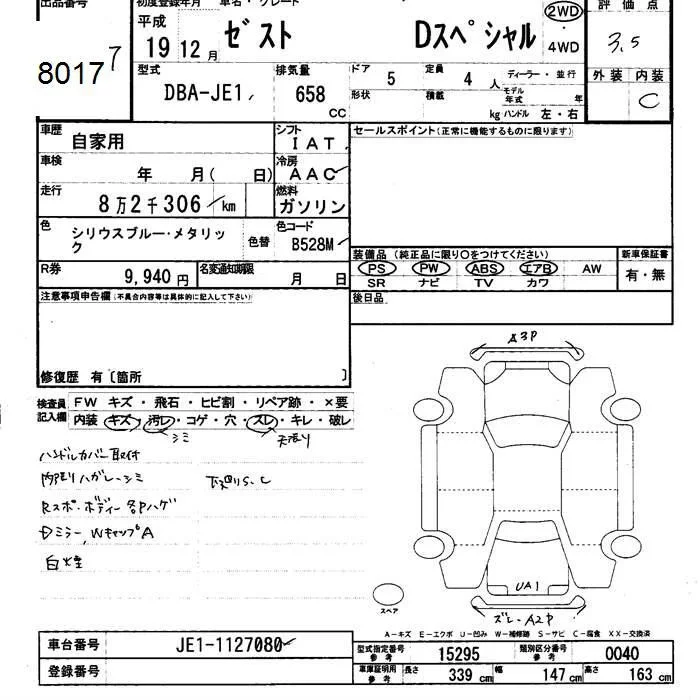 出品番号
初度登録年月 車名・グレード
評価点
平成 19 12月 ゼスト Dスペシャル 2WD ・ 4WD 3.5
8017 7
型式 DBA-JE1
排気量 658 CC
ドア 5 定員 4 人 ディーラー・並行
形状 積載 kg モデル年式 年 ハンドル 左・右
外装 内装 C
車歴 自家用
シフト IAT
セールスポイント(正常に機能するものに限ります)
車検 年 月( 日)
冷房 AAC
走行 8万2千306 km
燃料 ガソリン
色 シリウスブルー・メタリック 色替
色コード B528M
R券 9,940円 名変通知期限 月 日
装備品 (純正品に限り○をつけてください) 新車保証書
PS PW ABS エアB AW 有・無
SR ナビ TV カワ
注意事項申告欄(不具合内容等は具体的に記入して下さい)
後日品
修復歴 有〔箇所 〕
A3P
検査員記入欄
FW キズ・飛石・ヒビ割・リペア跡・×要
内装 キズ・汚レ・コゲ・穴・スレ・キレ・破レ
シミ 天張り
ハンドルカバー取付
内張りハガレ・シミ 下廻りS、C
Rスポ・ボディー各Pハゲ
Dミラー、WキャップA
白煙
UA1
スペア
ズレ・A2P
A-キズ E-エクボ U-凹み W-補修跡 S-サビ C-腐食 XX-交換済
車台番号 JE1-1127080
型式指定番号 参考 15295 類別区分番号 参考 0040
登録番号
車庫証明用 参考 長さ 339 cm 幅 147 cm 高さ 163 cm